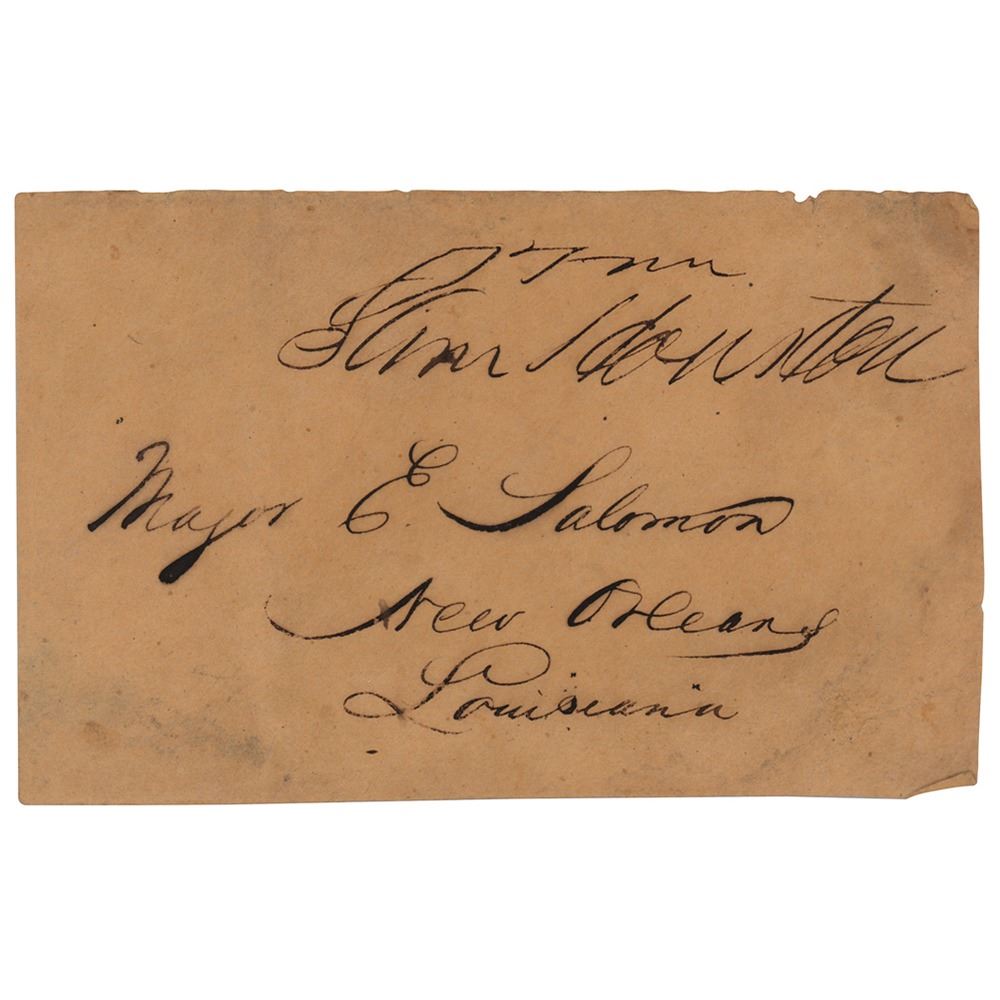 From
Sam Houston
Major E. Salomon
New Orleans
Louisiana